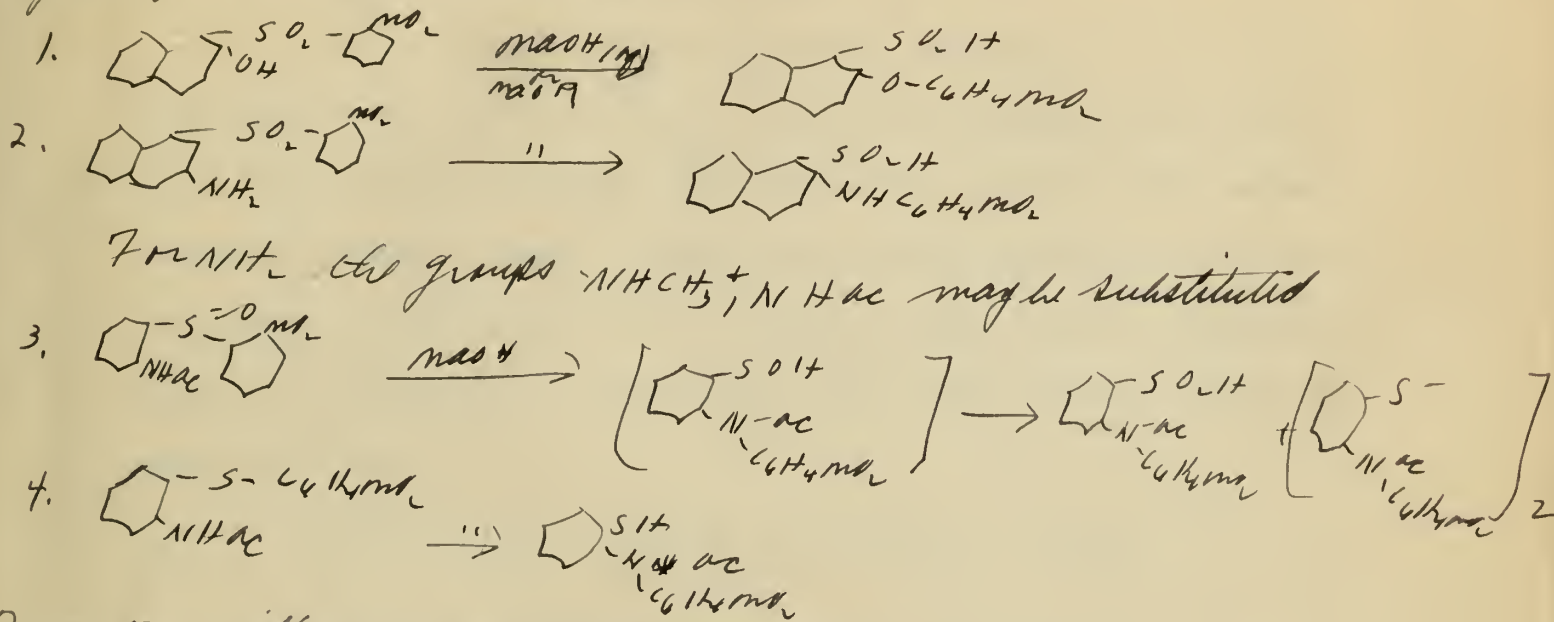 1. SO₂ - NO₂ OH NaOH (aq) → SO₂H O-C₆H₄NO₂
2. SO₂ - NO₂ NH₂ " → SO₂H NHC₆H₄NO₂
For NH₂ the groups -NHCH₃ +, NHAc may be substituted
3. -S=O NO₂ NHAc NaOH → [ -SOH N-Ac C₆H₄NO₂ ] → -SO₂H N-Ac C₆H₄NO₂ + [ -S- N Ac C₆H₄NO₂ ]₂
4. -S-C₆H₄NO₂ NHAc " → SH N Ac C₆H₄NO₂